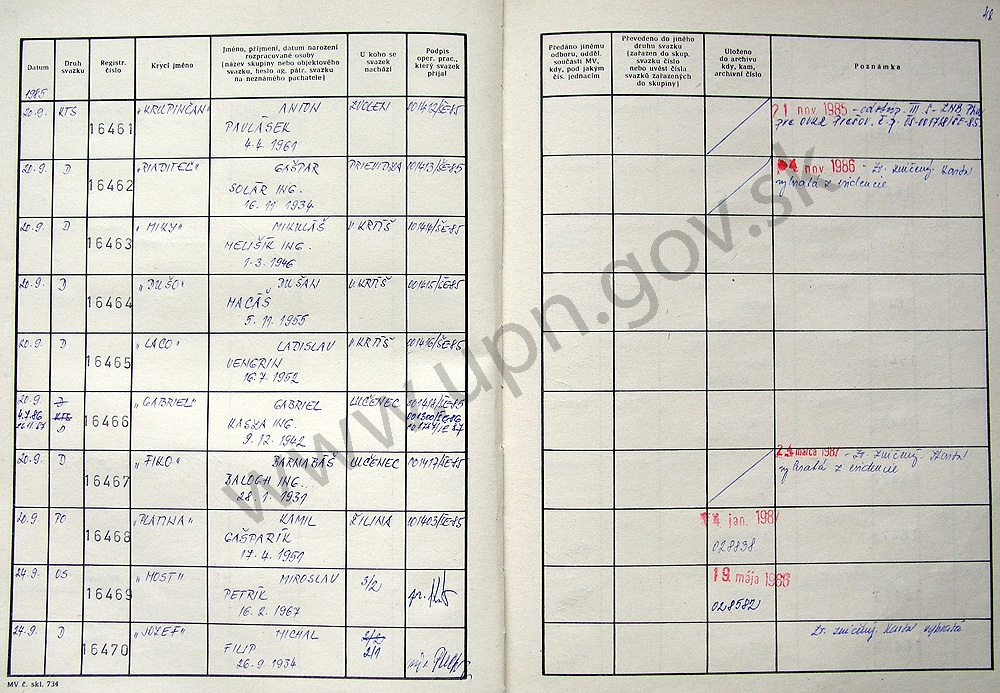 Datum
Druh svazku
Registr. číslo
Krycí jméno
Jméno, příjmení, datum narození rozpracované osoby (název skupiny nebo objektového svazku, heslo ag. pátr. svazku na neznámého pachatele)
U koho se svazek nachází
Podpis oper. prac., který svazek přijal
Předáno jinému odboru, odděl. součásti MV, kdy, pod jakým čís. jednacím
Převedeno do jiného druhu svazku (zařazen do skup. svazku číslo nebo uvést čísla svazků zařazených do skupiny)
Uloženo do archivu kdy, kam, archivní číslo
Poznámka
1985
20.9. KTS 16461 „KRUPINČAN" ANTON ZVOLEN 101412/ŠE-85 21 nov 1985
PAVLÁSEK
4.4. 1961
20.9. D 16462 „RIADITEĽ" GAŠPAR PRIEVIDZA 101413/ŠE-85 04 nov 1986 - Zv. zničený. Karta
SOLÁR ING. vybratá z evidencie
16.11 1934
20.9. D 16463 „MIKY" MIKULÁŠ V. KRTÍŠ 101414/ŠE-85
MELIŠÍK ING.
1.3. 1946
20.9. D 16464 „DUŠO" DUŠAN V. KRTÍŠ 101415/ŠE-85
MACÁŠ
5.11. 1955
20.9. D 16465 „LACO" LADISLAV V. KRTÍŠ 101416/ŠE-85
VENGRIN
16.7. 1952
20.9. 16466 „GABRIEL" GABRIEL LUČENEC
4.7.86 KTS KASZA ING.
D 9.12. 1942
20.9. D 16467 „FIKO" BARNABÁŠ LUČENEC 101417/ŠE-85 marca 1987 - Zv. zničený. Karta
BALOGH ING. vybratá z evidencie
28.1. 1931
20.9. PO 16468 „PLATINA" KAMIL ŽILINA 101403/ŠE-85 14 jan. 1987
GAŠPARÍK 028838
17.4. 1951
24.9. OS 16469 „MOST" MIROSLAV 3/2 19. mája 1986
PETRÍK 028582
16.2. 1967
24.9. D 16470 „JOZEF" MICHAL 2/1 Zv. zničený. Karta vybratá
FILIP
26.9. 1934
MV č. skl. 734
www.upn.gov.sk